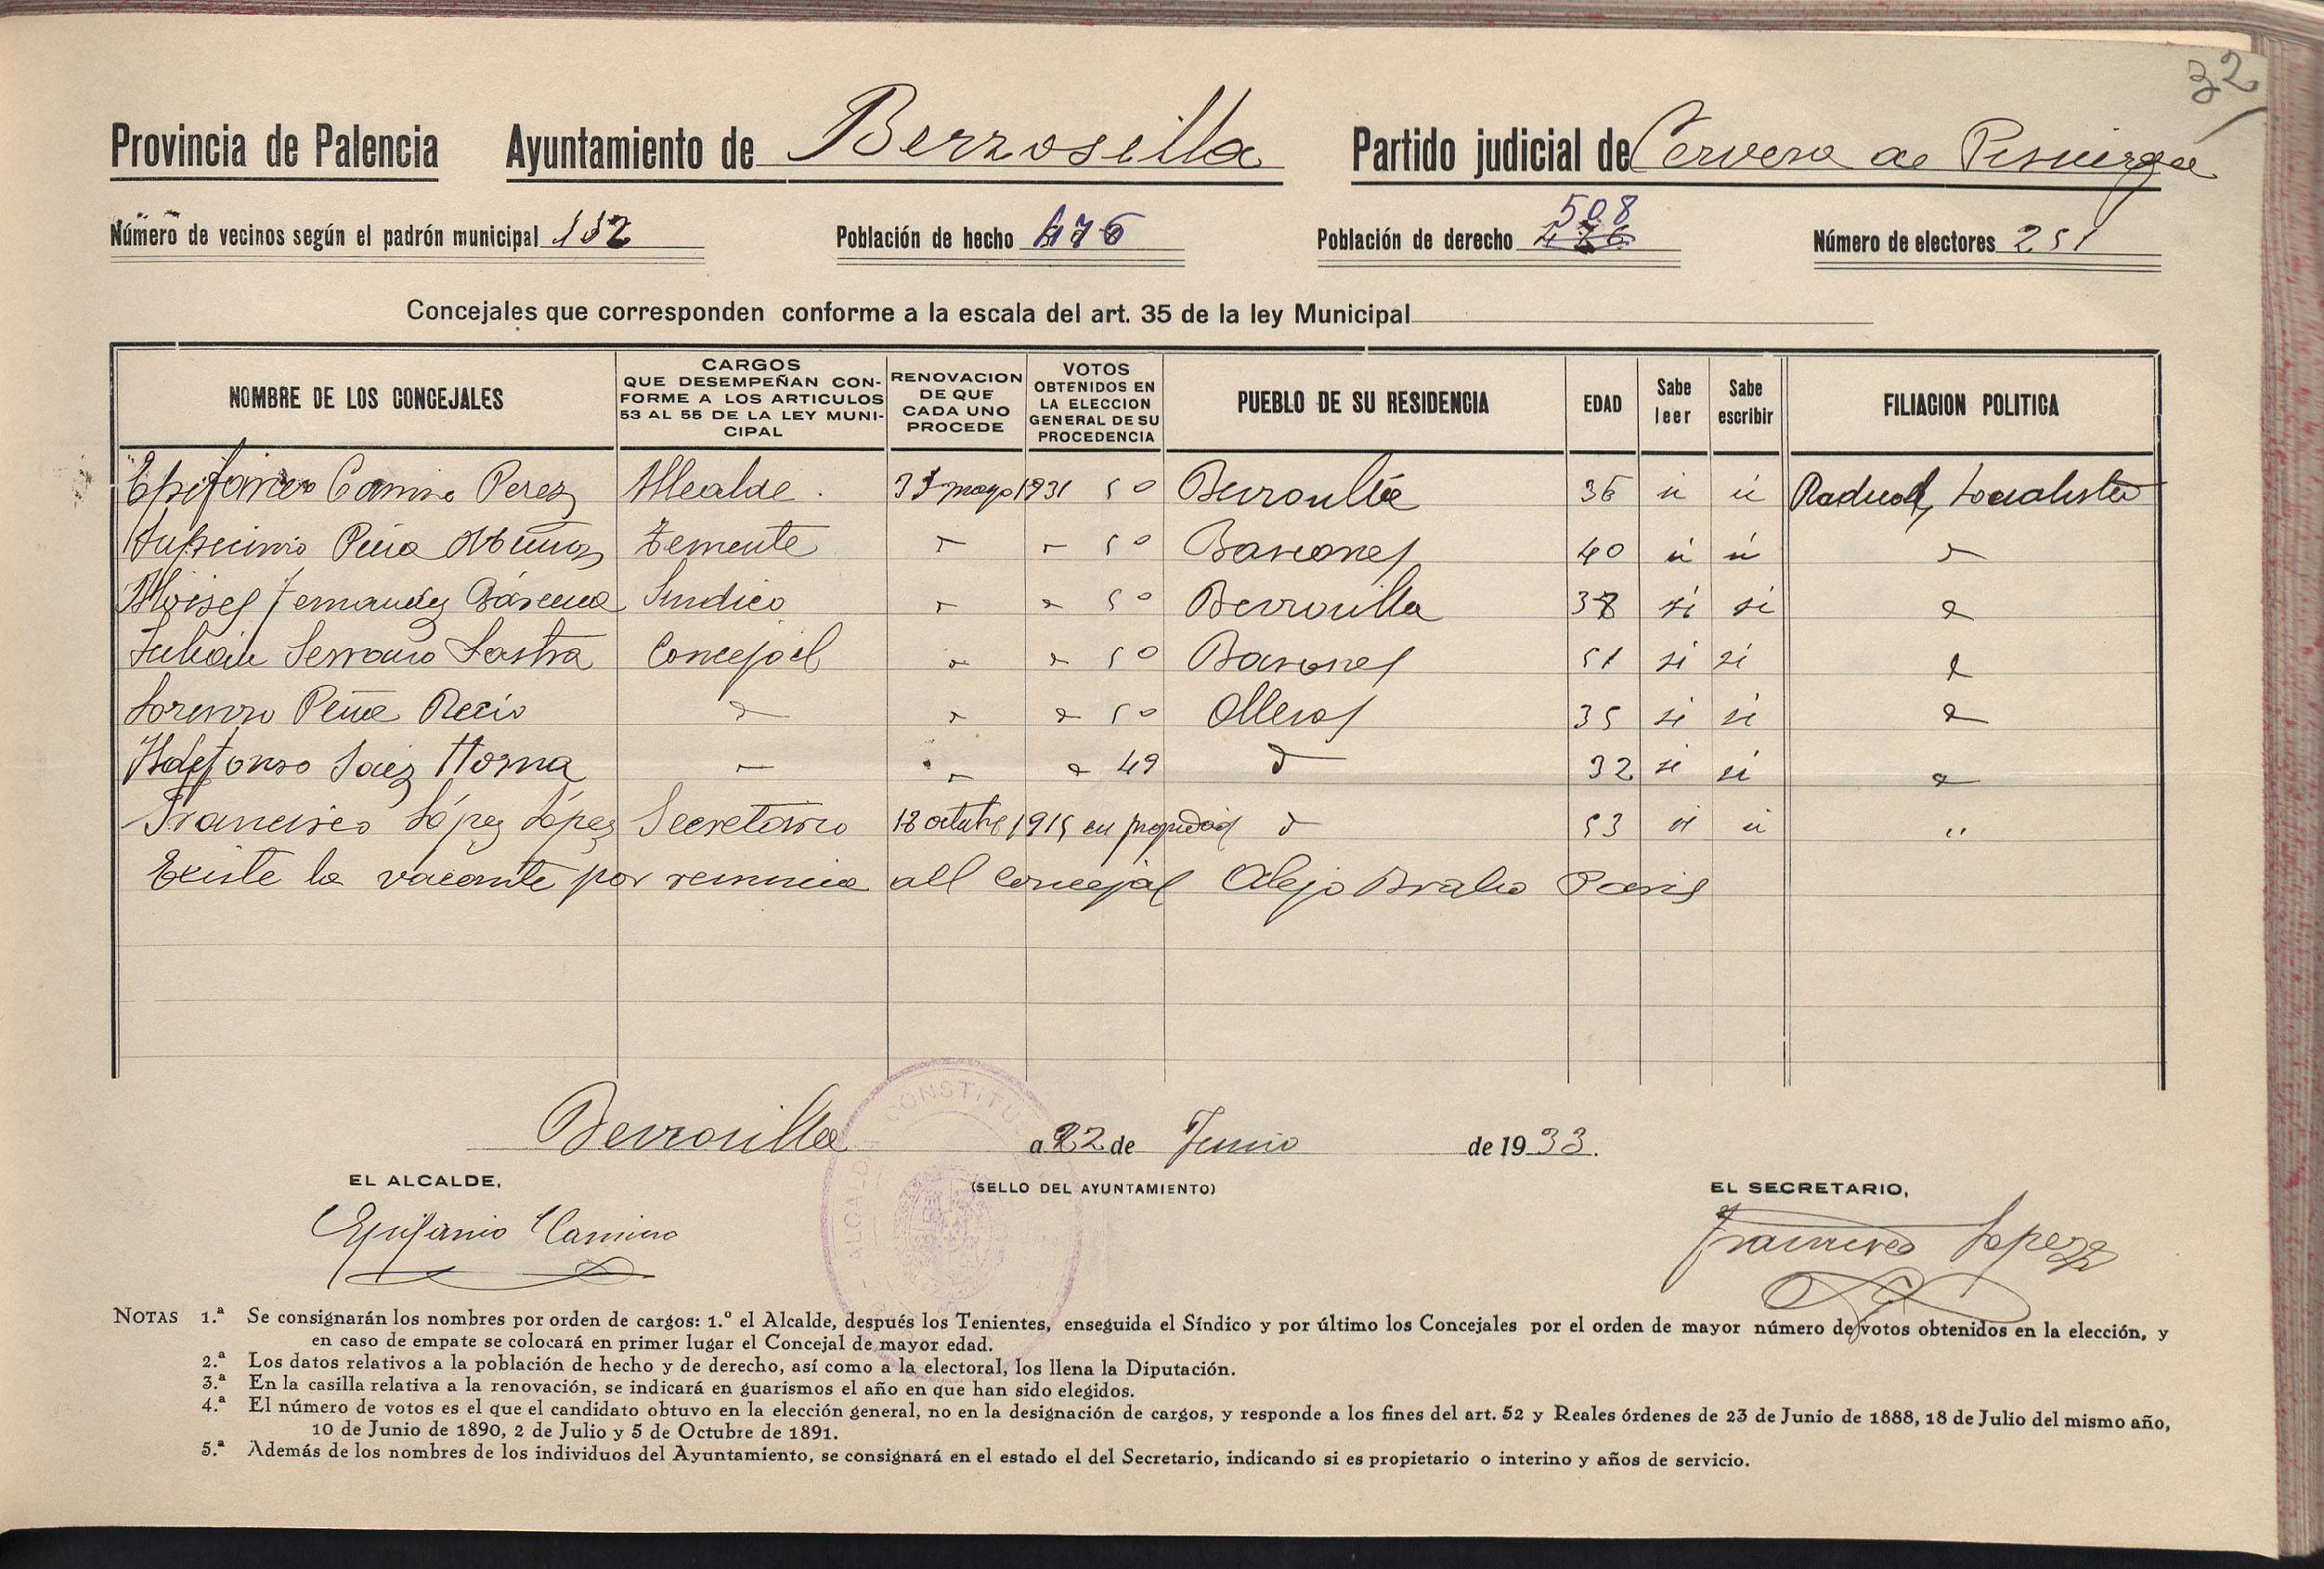 32
Provincia de Palencia Ayuntamiento de Berzosilla Partido judicial de Cervera de Pisuerga
Número de vecinos según el padrón municipal 132 Población de hecho 476 Población de derecho 476 508 Número de electores 251
Concejales que corresponden conforme a la escala del art. 35 de la ley Municipal
NOMBRE DE LOS CONCEJALES
CARGOS
QUE DESEMPEÑAN CON-
FORME A LOS ARTICULOS
53 AL 55 DE LA LEY MUNI-
CIPAL
RENOVACION
DE QUE
CADA UNO
PROCEDE
VOTOS
OBTENIDOS EN
LA ELECCION
GENERAL DE SU
PROCEDENCIA
PUEBLO DE SU RESIDENCIA
EDAD
Sabe
leer
Sabe
escribir
FILIACION POLITICA
Epifanio Camino Perez Alcalde 31 mayo 1931 50 Berzosilla 36 si si Radical, Socialista
Peña Muñoz Teniente " " 50 Bascones 40 si si "
Moises Fernandez Bárcena Sindico " " 50 Berzosilla 38 si si "
Julián Serrano Sastra Concejal " " 50 Bascones 51 si si "
Lorenzo Peña Recio " " " 50 Olleros 35 si si "
Ildefonso Saiz Horna " " " 49 " 32 si si "
Francisco López López Secretario 18 octubre 1915 en propiedad " 53 si si "
Existe la vacante por renuncia del concejal Alejo Bravo Paris
Berzosilla a 22 de Junio de 1933.
EL ALCALDE, (SELLO DEL AYUNTAMIENTO) EL SECRETARIO,
Epifanio Camino Francisco Lopez
ALCALDIA CONSTITU
NOTAS 1.ª Se consignarán los nombres por orden de cargos: 1.º el Alcalde, después los Tenientes, enseguida el Síndico y por último los Concejales por el orden de mayor número de votos obtenidos en la elección, y
en caso de empate se colocará en primer lugar el Concejal de mayor edad.
2.ª Los datos relativos a la población de hecho y de derecho, así como a la electoral, los llena la Diputación.
3.ª En la casilla relativa a la renovación, se indicará en guarismos el año en que han sido elegidos.
4.ª El número de votos es el que el candidato obtuvo en la elección general, no en la designación de cargos, y responde a los fines del art. 52 y Reales órdenes de 23 de Junio de 1888, 18 de Julio del mismo año,
10 de Junio de 1890, 2 de Julio y 5 de Octubre de 1891.
5.ª Además de los nombres de los individuos del Ayuntamiento, se consignará en el estado el del Secretario, indicando si es propietario o interino y años de servicio.